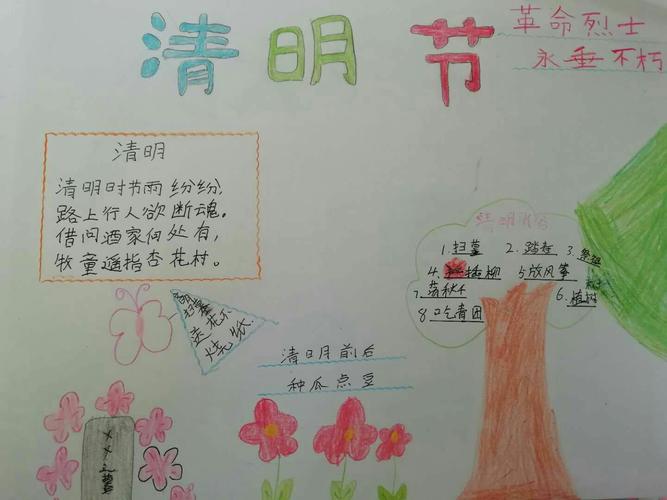 清明节
革命烈士
永垂不朽
清明
清明时节雨纷纷,
路上行人欲断魂。
借问酒家何处有,
牧童遥指杏花村。
清明习俗
1.扫墓 2.踏青 3.祭祖
4.插柳 5放风筝
7.荡秋千 6.植树
8.吃青团
送花不
烧纸
清明前后
种瓜点豆
××之墓